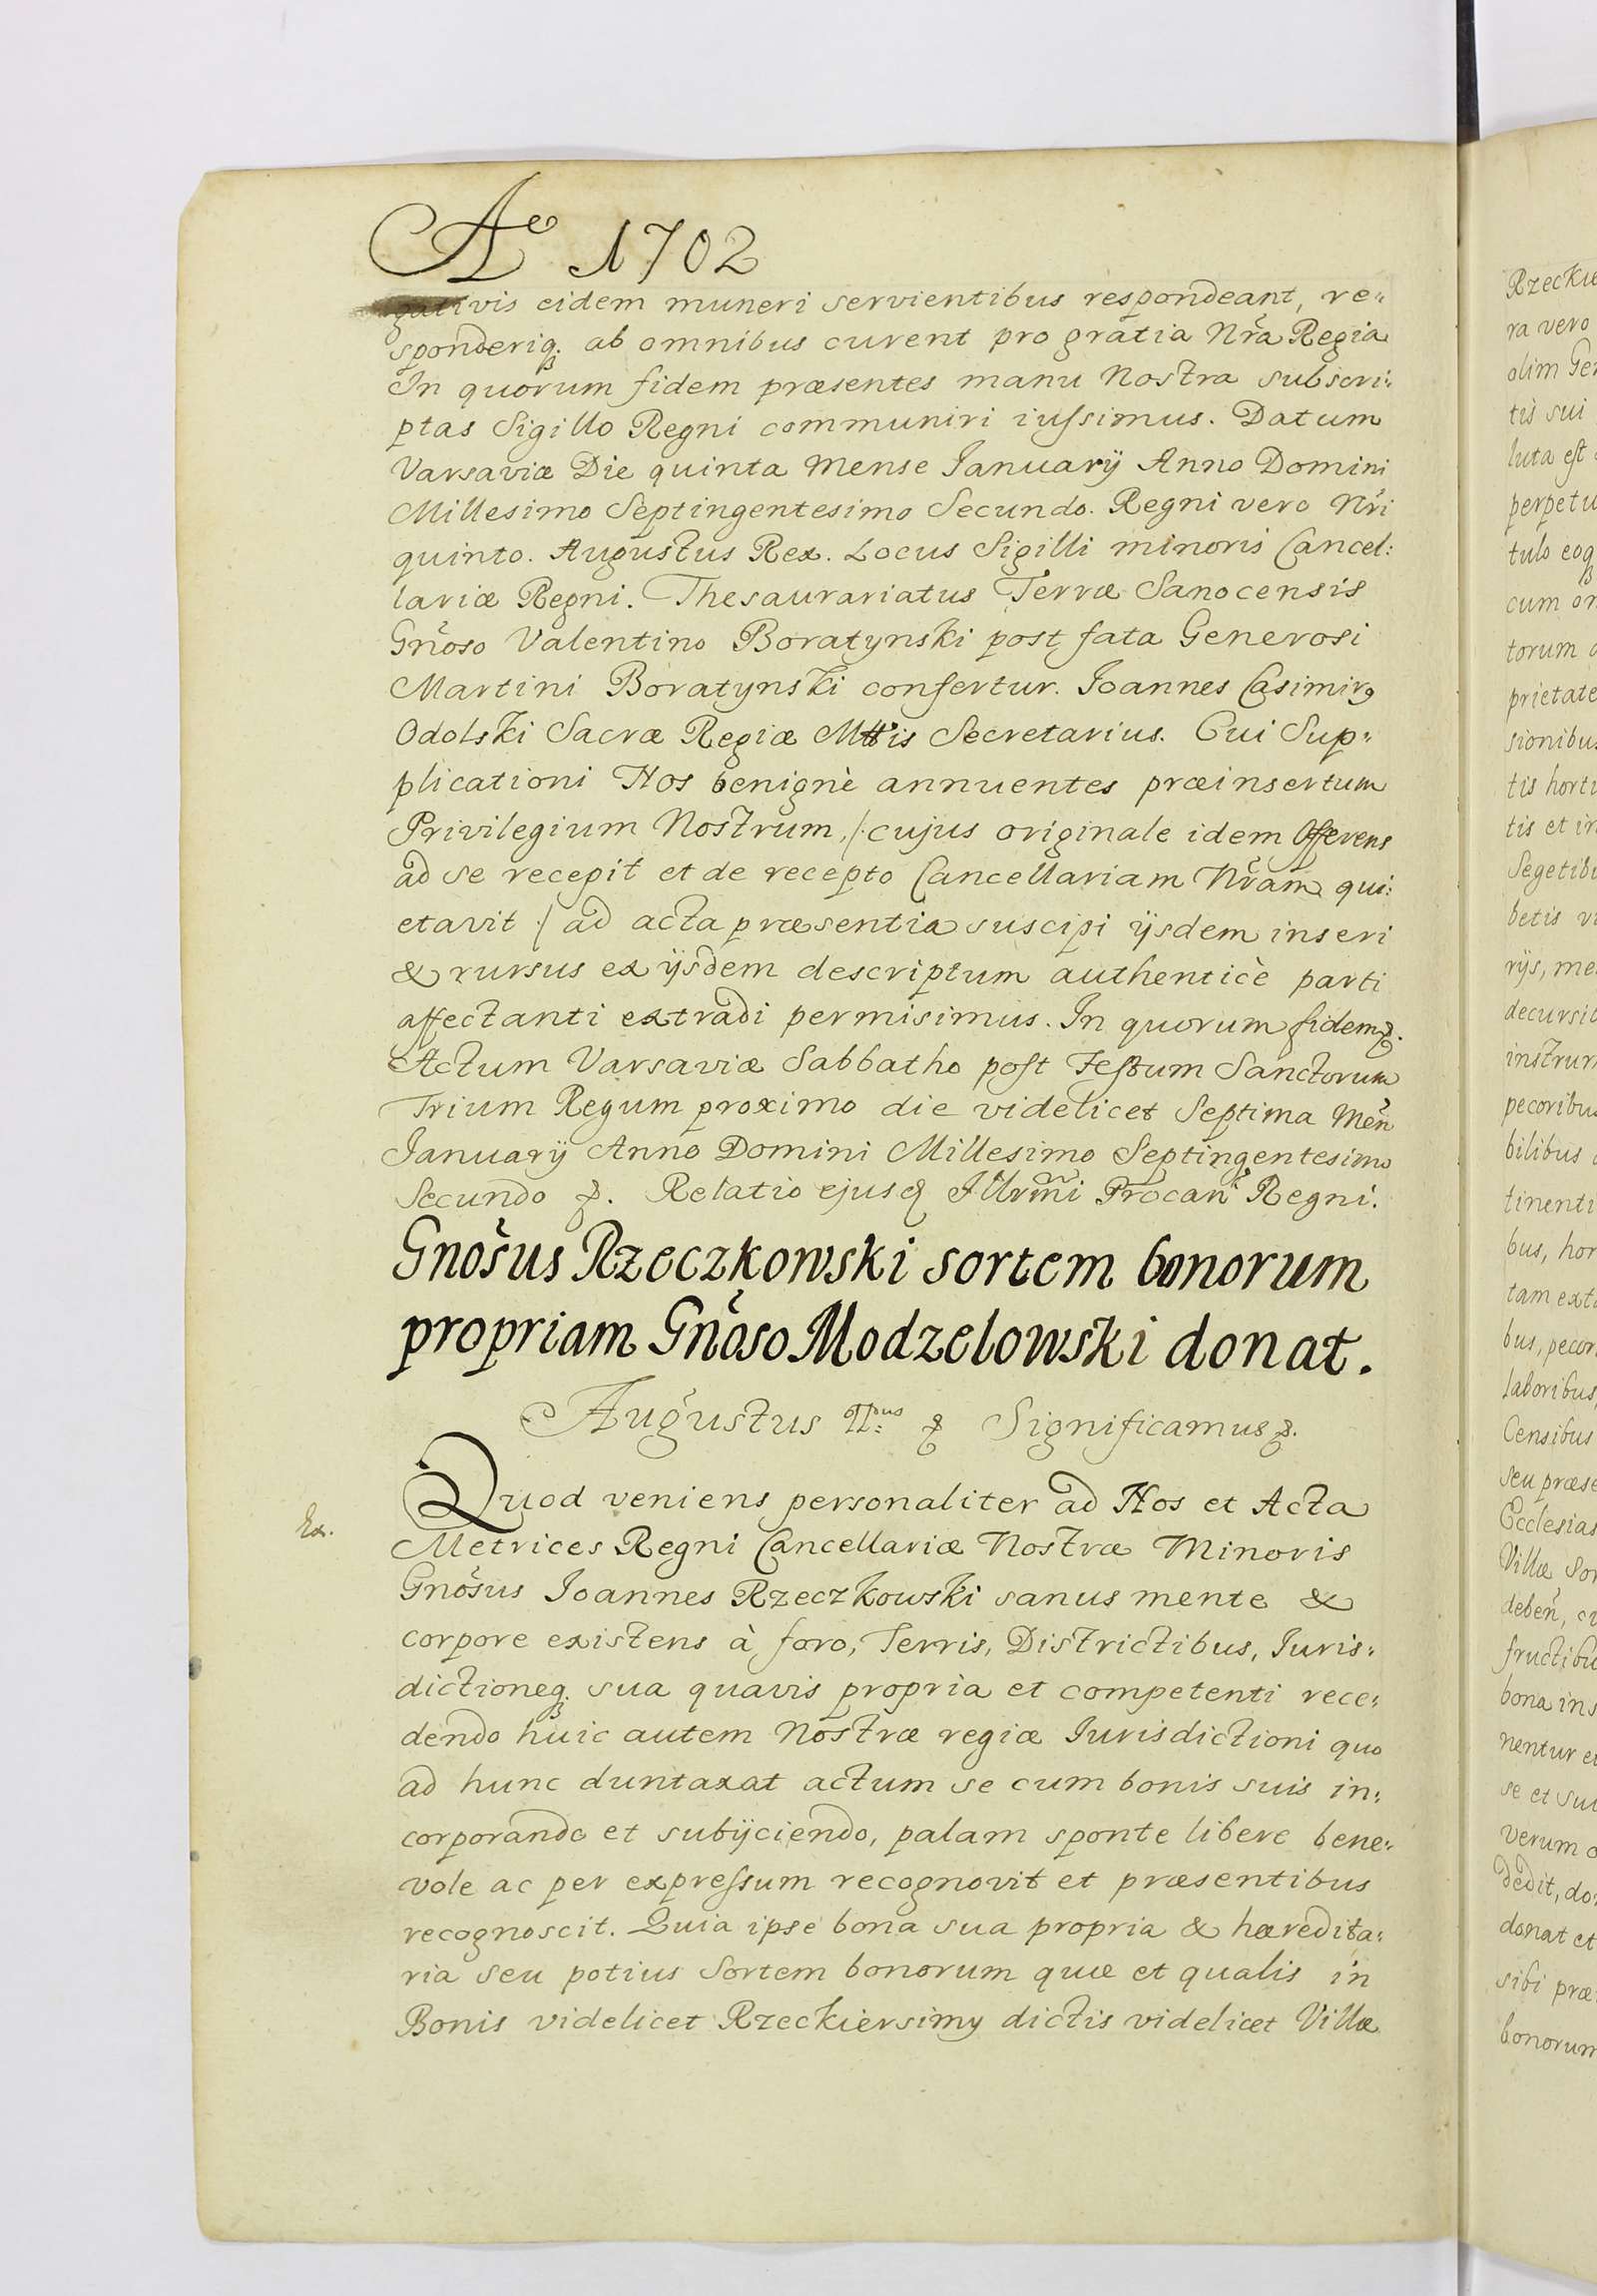 Ao 1702
gativis eidem muneri servientibus respondeant, re„
sponderiq. ab omnibus curent pro gratia Nr̃a Regia
In quorum fidem præsentes manu Nostra subscri„
ptas Sigillo Regni communiri iuſsimus. Datum
Varsaviæ Die quinta Mense Ianuarÿ Anno Domini
Millesimo Septingentesimo Secundo. Regni vero Nr̃i
quinto. Augustus Rex. Locus Sigilli minoris Cancel:
lariæ Regni. Thesaurariatus Terræ Sanocensis
Gñoso Valentino Boratynski post fata Generosi
Martini Boratynski confertur. Ioannes Casimirꝰ
Odolski Sacræ Regiæ Mttis Secretarius. Cui Sup„
plicationi Nos benignè annuentes præinsertum
Privilegium Nostrum, /: cujus originale idem Offerens
ad se recepit et de recepto Cancellariam Nr̃am qui:
etavit :/ ad acta præsentia suscipi ijsdem inseri
& rursus ex ijsdem descriptum authenticè parti
affectanti extradi permisimus. In quorum fidem &.
Actum Varsaviæ Sabbatho poſt Feſtum Sanctorum
Trium Regum proximo die videlicet Septima Men̄
Ianuarÿ Anno Domini Millesimo Septingentesimo
Secundo &. Relatio ejusd Illrm̃i Procan̄ Regni.
Gnõsus Rzeczkowski sortem bonorum
propriam Gñoso Modzelowski donat.
Augustus IIdus & Significamus &.
Quod veniens personaliter ad Nos et Acta
Ex.
Metrices Regni Cancellariæ Nostræ Minoris
Gnõsus Ioannes Rzeczkowski sanus mente &
corpore existens à foro, Terris, Districtibus, Iuris„
dictioneq. sua quavis propria et competenti rece„
dendo huic autem Nostræ regiæ Iurisdictioni quo
ad hunc duntaxat actum se cum bonis suis in„
corporando et subijciendo, palam sponte libere bene„
vole ac per expreſsum recognovit et præsentibus
recognoscit. Quia ipse bona sua propria & hæredita„
ria seu potius Sortem bonorum quæ et qualis in
Bonis videlicet Rzeckiersimy dictis videlicet Villæ
Rzeckie
ra vero
olim Gen
tis sui
luta eſt
perpetu
tulo eoq
cum om
torum
prietate
sionibus
tis horti
tis et in
Segetibu
betis vi
rijs, me
decursi
instrum
pecoribus
bilibus
tinenti
bus, hor
tam exta
bus, pecor
laboribus,
Censibus
seu præse
Ecclesias
Villæ Sor
deben̄, cu
fructibu
bona ins
nentur et
se et sui
verum
dedit, do
donat et
sibi præ
bonorum